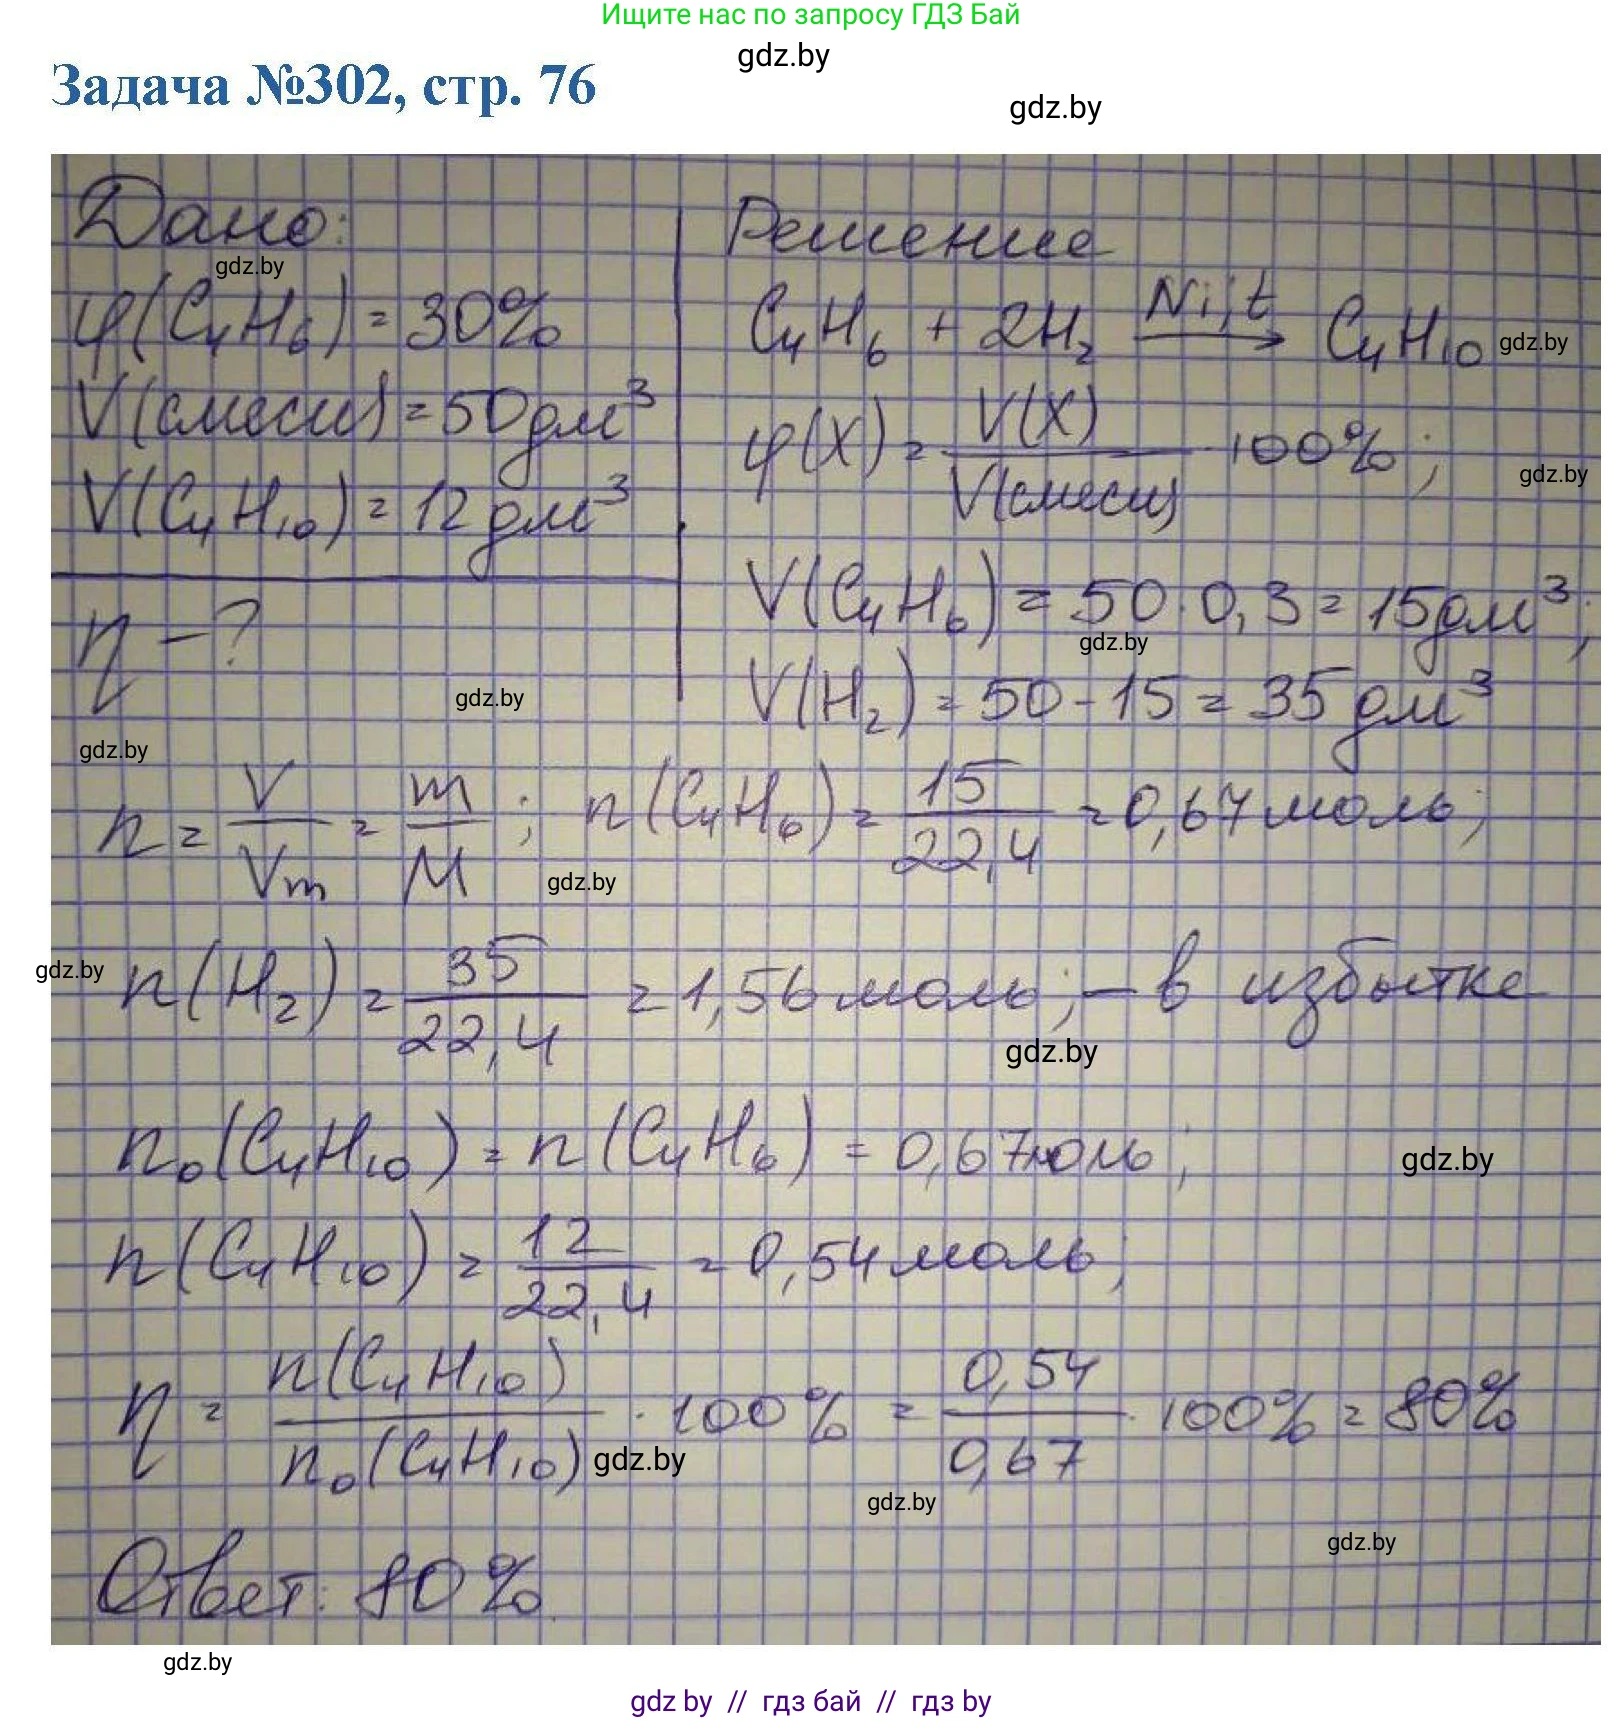 Ищите нас по запросу ГДЗ Бай
gdz.by
Задача №302, стр. 76
gdz.by
Дано:
gdz.by
φ(C₄H₆) = 30%
V(смеси) = 50 дм³
V(C₄H₁₀) = 12 дм³
η - ?
gdz.by
gdz.by
Решение
C₄H₆ + 2H₂ Ni, t → C₄H₁₀
gdz.by
φ(X) = V(X) / V(смеси) · 100%;
gdz.by
V(C₄H₆) = 50 · 0,3 = 15 дм³;
gdz.by
V(H₂) = 50 - 15 = 35 дм³
n = V / Vm = m / M; n(C₄H₆) = 15 / 22,4 = 0,67 моль;
gdz.by
gdz.by
n(H₂) = 35 / 22,4 = 1,56 моль; - в избытке
gdz.by
n₀(C₄H₁₀) = n(C₄H₆) = 0,67 моль;
gdz.by
n(C₄H₁₀) = 12 / 22,4 = 0,54 моль;
η = n(C₄H₁₀) / n₀(C₄H₁₀) · 100% = 0,54 / 0,67 · 100% = 80%
gdz.by
gdz.by
gdz.by
Ответ: 80%.
gdz.by
gdz by // гдз бай // гдз by